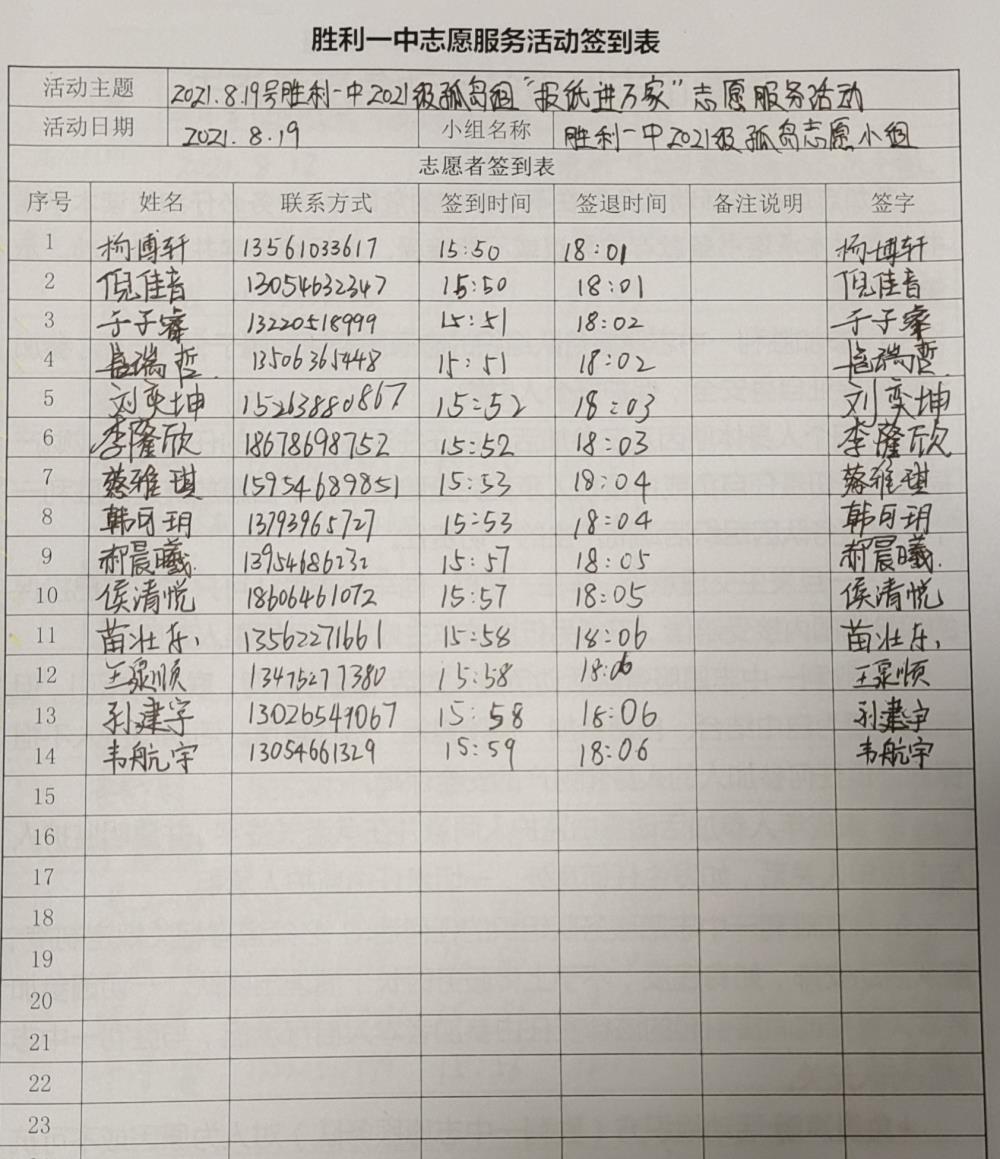 胜利一中志愿服务活动签到表
活动主题 2021.8.19号胜利一中2021级孤岛组“报纸进万家”志愿服务活动
活动日期 2021.8.19 小组名称 胜利一中2021级孤岛志愿小组
志愿者签到表
序号 姓名 联系方式 签到时间 签退时间 备注说明 签字
1 杨博轩 13561033617 15:50 18:01 杨博轩
2 倪佳音 13054632347 15:50 18:01 倪佳音
3 于子睿 13220518999 15:51 18:02 于子睿
4 瑞哲 13506365448 15:51 18:02 瑞哲
5 刘奕坤 15263880867 15:52 18:03 刘奕坤
6 李隆欣 18678698752 15:52 18:03 李隆欣
7 蔡雅琪 15954689851 15:53 18:04 蔡雅琪
8 韩玥 13793965727 15:53 18:04 韩玥
9 郝晨曦 13954686232 15:57 18:05 郝晨曦
10 侯清悦 18606461072 15:57 18:05 侯清悦
11 苗壮东 13562271661 15:58 18:06 苗壮东
12 王顺 13475277380 15:58 18:06 王顺
13 孙建宇 13026549067 15:58 18:06 孙建宇
14 韦航宇 13054661329 15:59 18:06 韦航宇
15
16
17
18
19
20
21
22
23